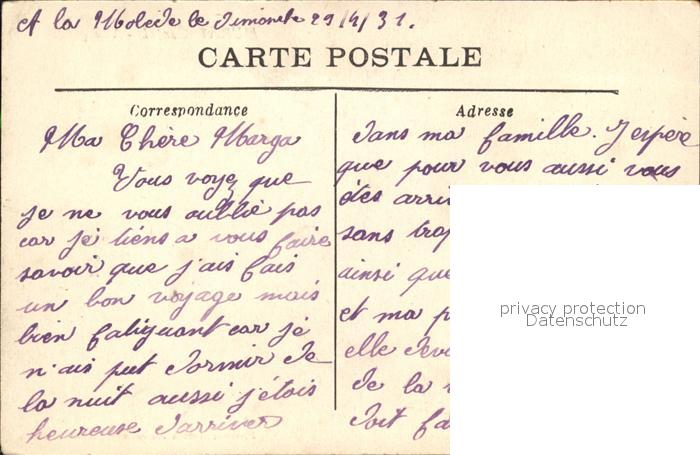 A la le Dimanche 29/4/31.
CARTE POSTALE
Correspondance
Ma Chère Marga
Vous voyez que
je ne vous oublie pas
car je tiens a vous faire
savoir que j'ais fais
un bon voyage mais
bien fatiguant car je
n'ais put dormir de
la nuit aussi j'étais
heureuse d'arriver
Adresse
dans ma famille. J'espère
que pour vous aussi vous
êtes
sans trop
ainsi que
et ma
elle
de la
doit
privacy protection
Datenschutz